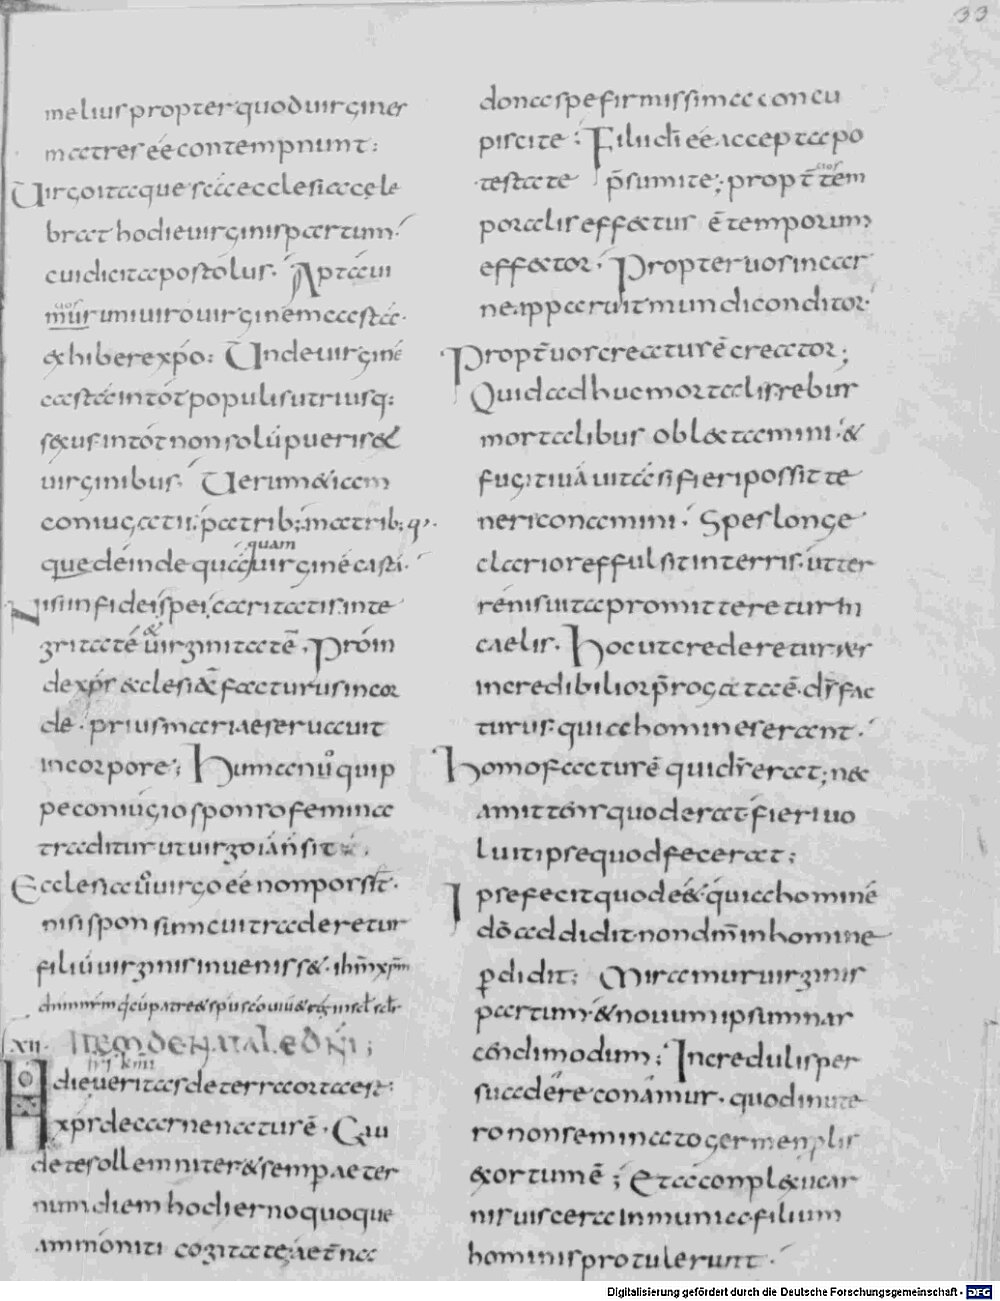 33
melius propter quod uirgines
matres eé contempnunt:
Uirgo itaque scã ecclesia cęle
brat hodie uirginis partum.
cui dicit apostolus. Aptaui
uos
uni uiro uirginem castã.
exhibere xpo: Unde uirginé
castã in tot populis utriusq:
sexus in tot non solū pueris &
uirginibus. Uerum & iam
coniugatis. patrib; matrib; q;
quam
que deinde uirginé casti.
Nisi in fidei spei caritatis inte
gritaté & uirginitatē. Proin
de xps ecclesiā facturus in cor
de. prius mariae seruauit
in corpore; Humano quip
pe coniugio sponso femina
traditur ut uirgo iā ñ sit.
Ecclesia ū uirgo eé non posset.
nisi sponsum cui traderetur
filiū uirginis inuenisset. ihm xpm
XII. ITEM DE NATALE DNI;
Hodie ueritas de terra orta est:
xps de carne natus ē. Gau
dete sollemniter & semp aeter
num diem hodierno quoque
ammoniti cogitate. aetna
dona spe firmissima concu
piscite: Filii di eé accepta po
testate psumite; propt uos tem
poralis effectus ē temporum
effector. Propter uos in car
ne apparuit mundi conditor.
Propt uos creatus ē creator;
Quid adhuc mortalis rebus
mortalibus oblectamini. &
fugitiuā uitā si fieri possit te
nere conamini. Spes longe
clarior effulsit in terris. ut ter
renis uita promitteretur in
caelis. Hoc ut crederetur res
incredibilior progata ē. ds fac
turus. qui a homines erant.
Homo factus ē qui ds erat; nec
amittens quod erat. fieri uo
luit ipse quod fecerat;
Ipse fecit quod eét. quia hominé
dō addidit. non dm in homine
pdidit; Miramur uirginis
partum. & nouum ipsum nas
cendi modum; Increduli sper
suadere conamur. quod in ute
ro non seminato germen plis
exortum ē; Et a complexu car
nis uiscera inmunia. filium
hominis protulerunt.